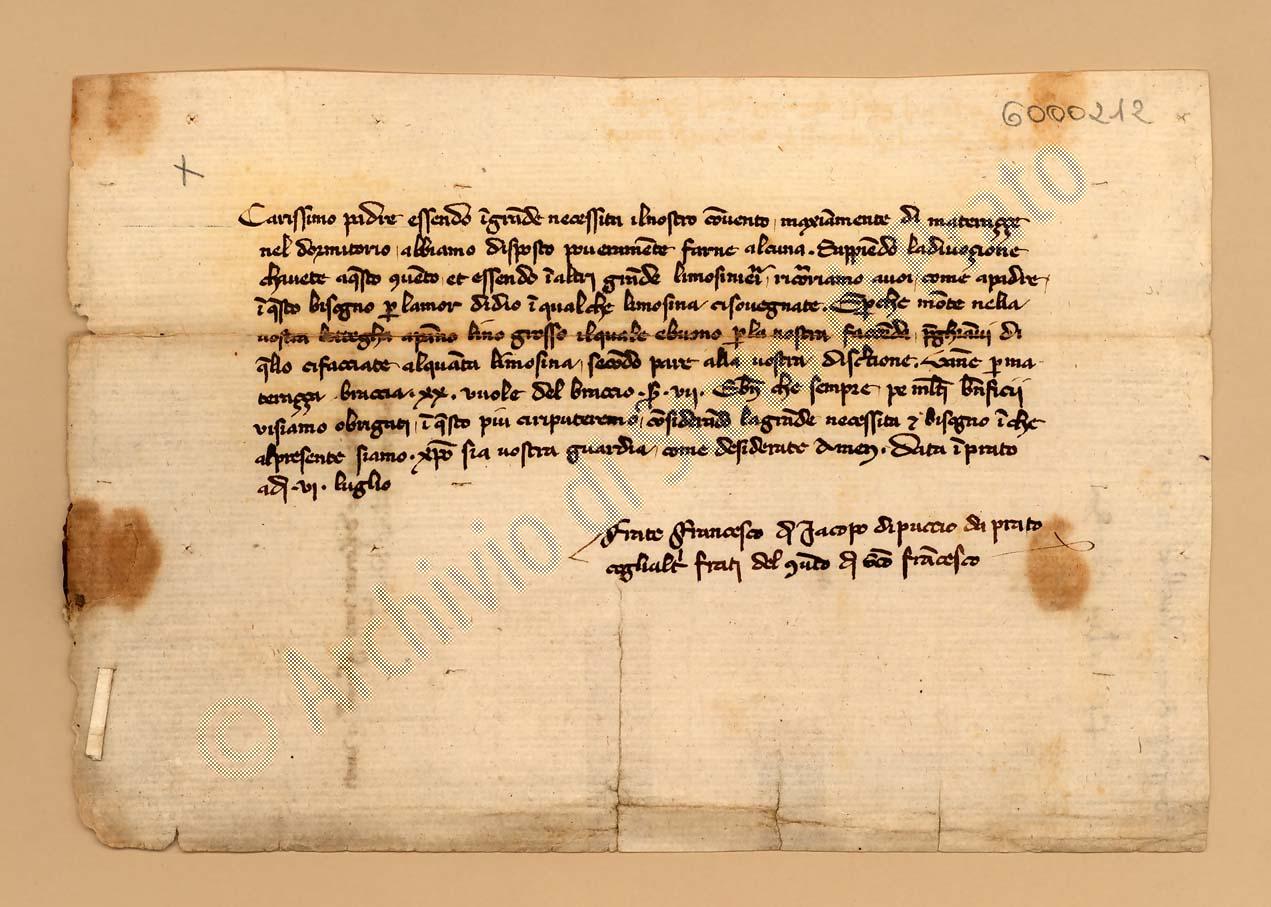 6000212
+
Carissimo padre essendo ĩ grãde necessita il nostro cõvento, maxiamente di materazze
nel dormitorio, abbiamo disposto poveramẽte farne alcuna. Sappiẽdo la divozione
chavete a q̃sto 9vẽto, et essendo ĩ altri grãde limosinieri, ricorriamo a voi, come a padre,
ĩ q̃sto bisogno p̱ lamor di dio ĩ qualche limosina ci sovegnate. E p̱che
vostra bottegha a pãno lino grosso il quale e buono p̱ la nostra facẽda, p̃ghiamvi di
q̃llo ci facciate alquãta limosina, secõdo pare alla vostra discretione. p̱ ma-
terazza braccia .xx. vuole del braccio .s. vii. che sempre pe bñficii
vi siamo obrigati, ĩ q̃sto piu ci riputeremo, cõsiderãdo la grãde necessita e bisogno ĩ che
al presente siamo. xp̃o sia vostra guardia, come desiderate Amen. Data ĩ prato
a dì .vi. luglio
Frate Francesco d̃ Jacopo di puccio da prato
e gli altri frati del 9vẽto d̃ sc̃o frãcesco
© Archivio di Stato Prato